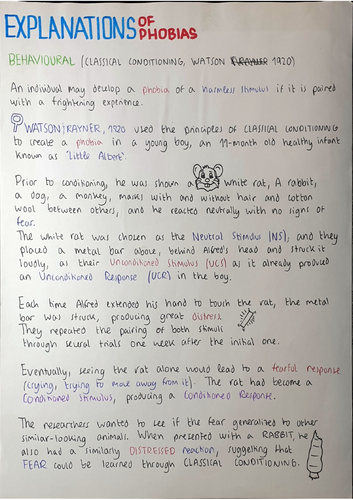 EXPLANATIONS OF PHOBIAS
BEHAVIOURAL (CLASSICAL CONDITIONING, WATSON RAYNER 1920)
An individual may develop a phobia of a harmless stimulus if it is paired
with a frightening experience.
WATSON/RAYNER, 1920 used the principles of CLASSICAL CONDITIONING
to create a phobia in a young boy, an 11-month old healthy infant
known as 'Little Albert'.
Prior to conditioning, he was shown a white rat, A rabbit,
a dog, a monkey, masks with and without hair and cotton
wool between others, and he reacted neutrally with no signs of
fear.
The white rat was chosen as the Neutral Stimulus (NS), and they
placed a metal bar above, behind Alfred's head and struck it
loudly, as their Unconditioned Stimulus (UCS) as it already produced
an Unconditioned Response (UCR) in the boy.
Each time Alfred extended his hand to touch the rat, the metal
bar was struck, producing great distress.
They repeated the pairing of both stimuli
through several trials one week after the initial one.
Eventually, seeing the rat alone would lead to a fearful response
(crying, trying to move away from it). The rat had become a
Conditioned Stimulus, producing a Conditioned Response.
The researchers wanted to see if the fear generalised to other
similar-looking animals. When presented with a RABBIT, he
also had a similarly DISTRESSED reaction, suggesting that
FEAR could be learned through CLASSICAL CONDITIONING.